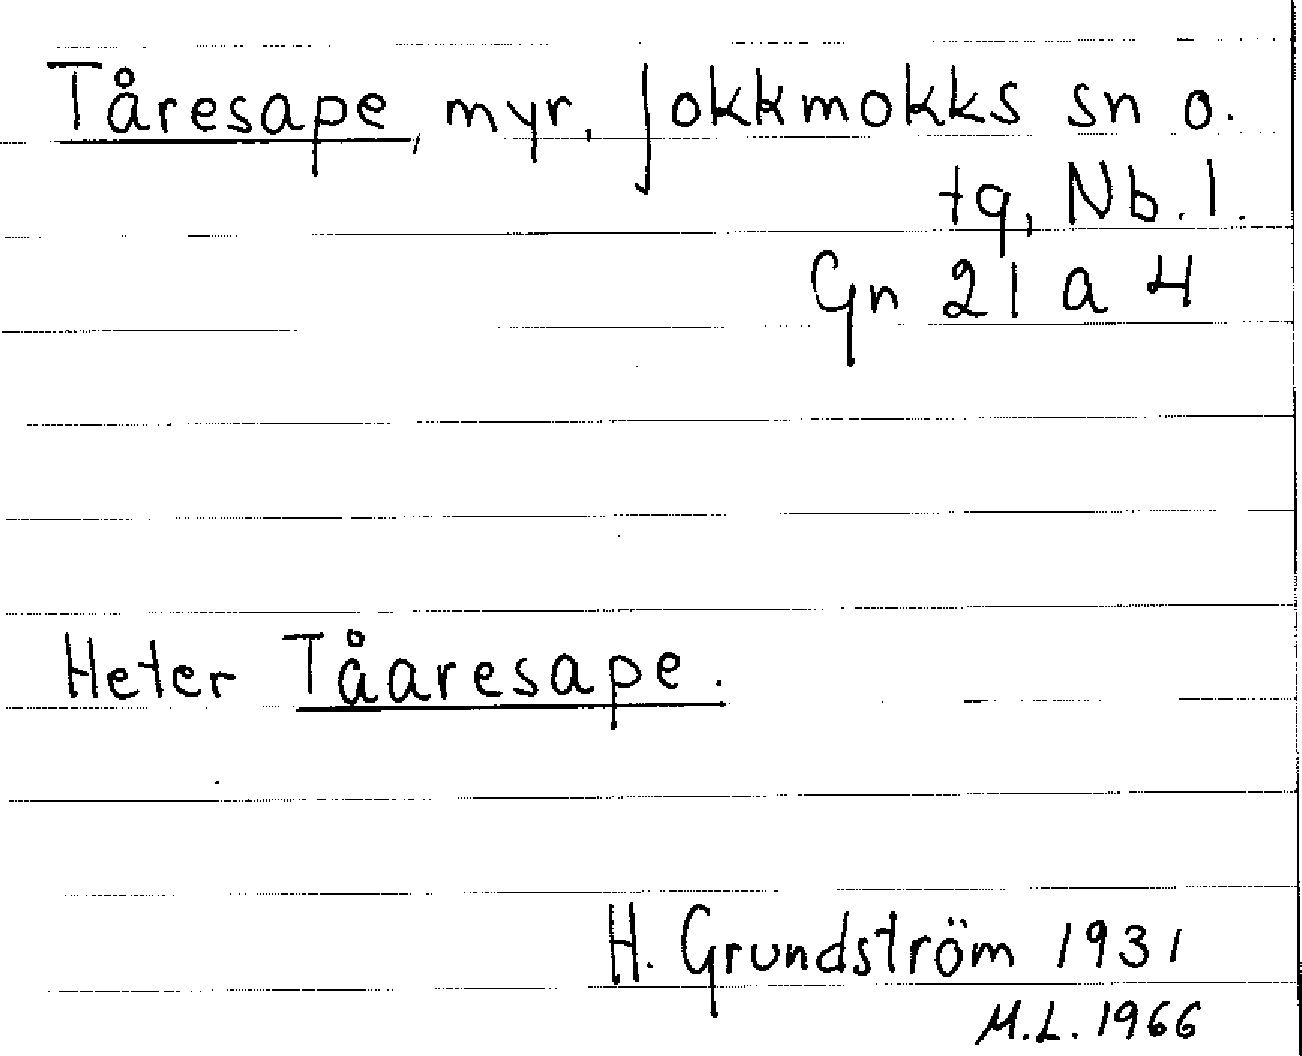 Tåresape, myr, Jokkmokks sn o.
tg, Nb. l.
Gn 21 a 4
Heter Tåaresape.
H. Grundström 1931
M.L. 1966